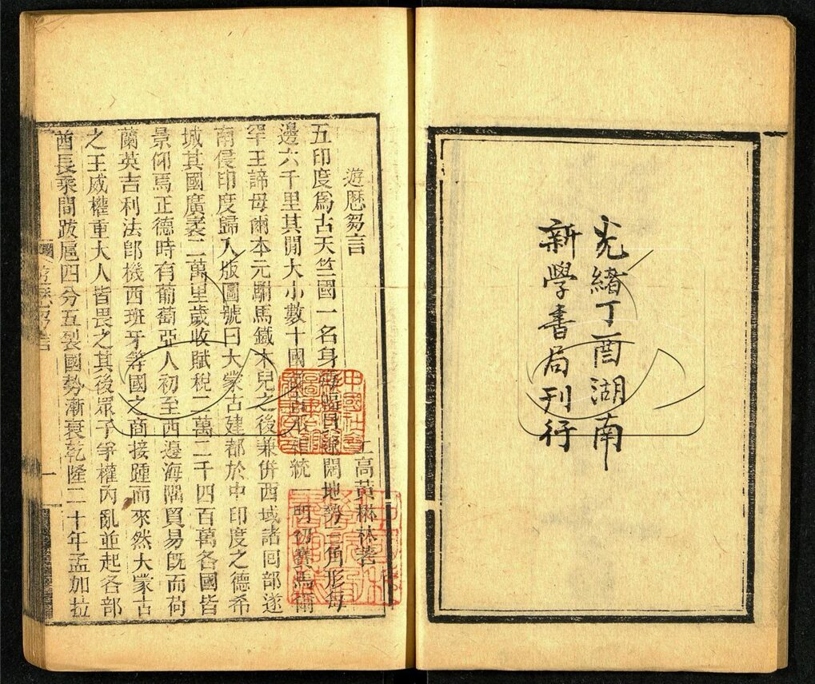 光緒丁酉湖南
新學書局刊行
遊歷芻言
上高黃楙材著
五印度爲古天竺國一名身毒 闊地勢三角形每
邊六千里其間大小數十國 統一明初賽馬爾
罕王諦母爾本元駙馬鐵木兒之後兼併西域諸回部遂
南侵印度歸入版圖號曰大蒙古建都於中印度之德希
城其國廣袤二萬里歲收賦稅二萬二千四百萬各國皆
景仰焉正德時有葡萄亞人初至西邊海隅貿易旣而荷
蘭英吉利法郎機西班牙等國之商接踵而來然大蒙古
之王威權重大人皆畏之其後眾子爭權內亂並起各部
酋長乘間跋扈四分五裂國勢漸衰乾隆二十年孟加拉
遊歷芻言
一